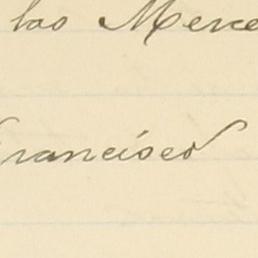 las Merce
Francisco